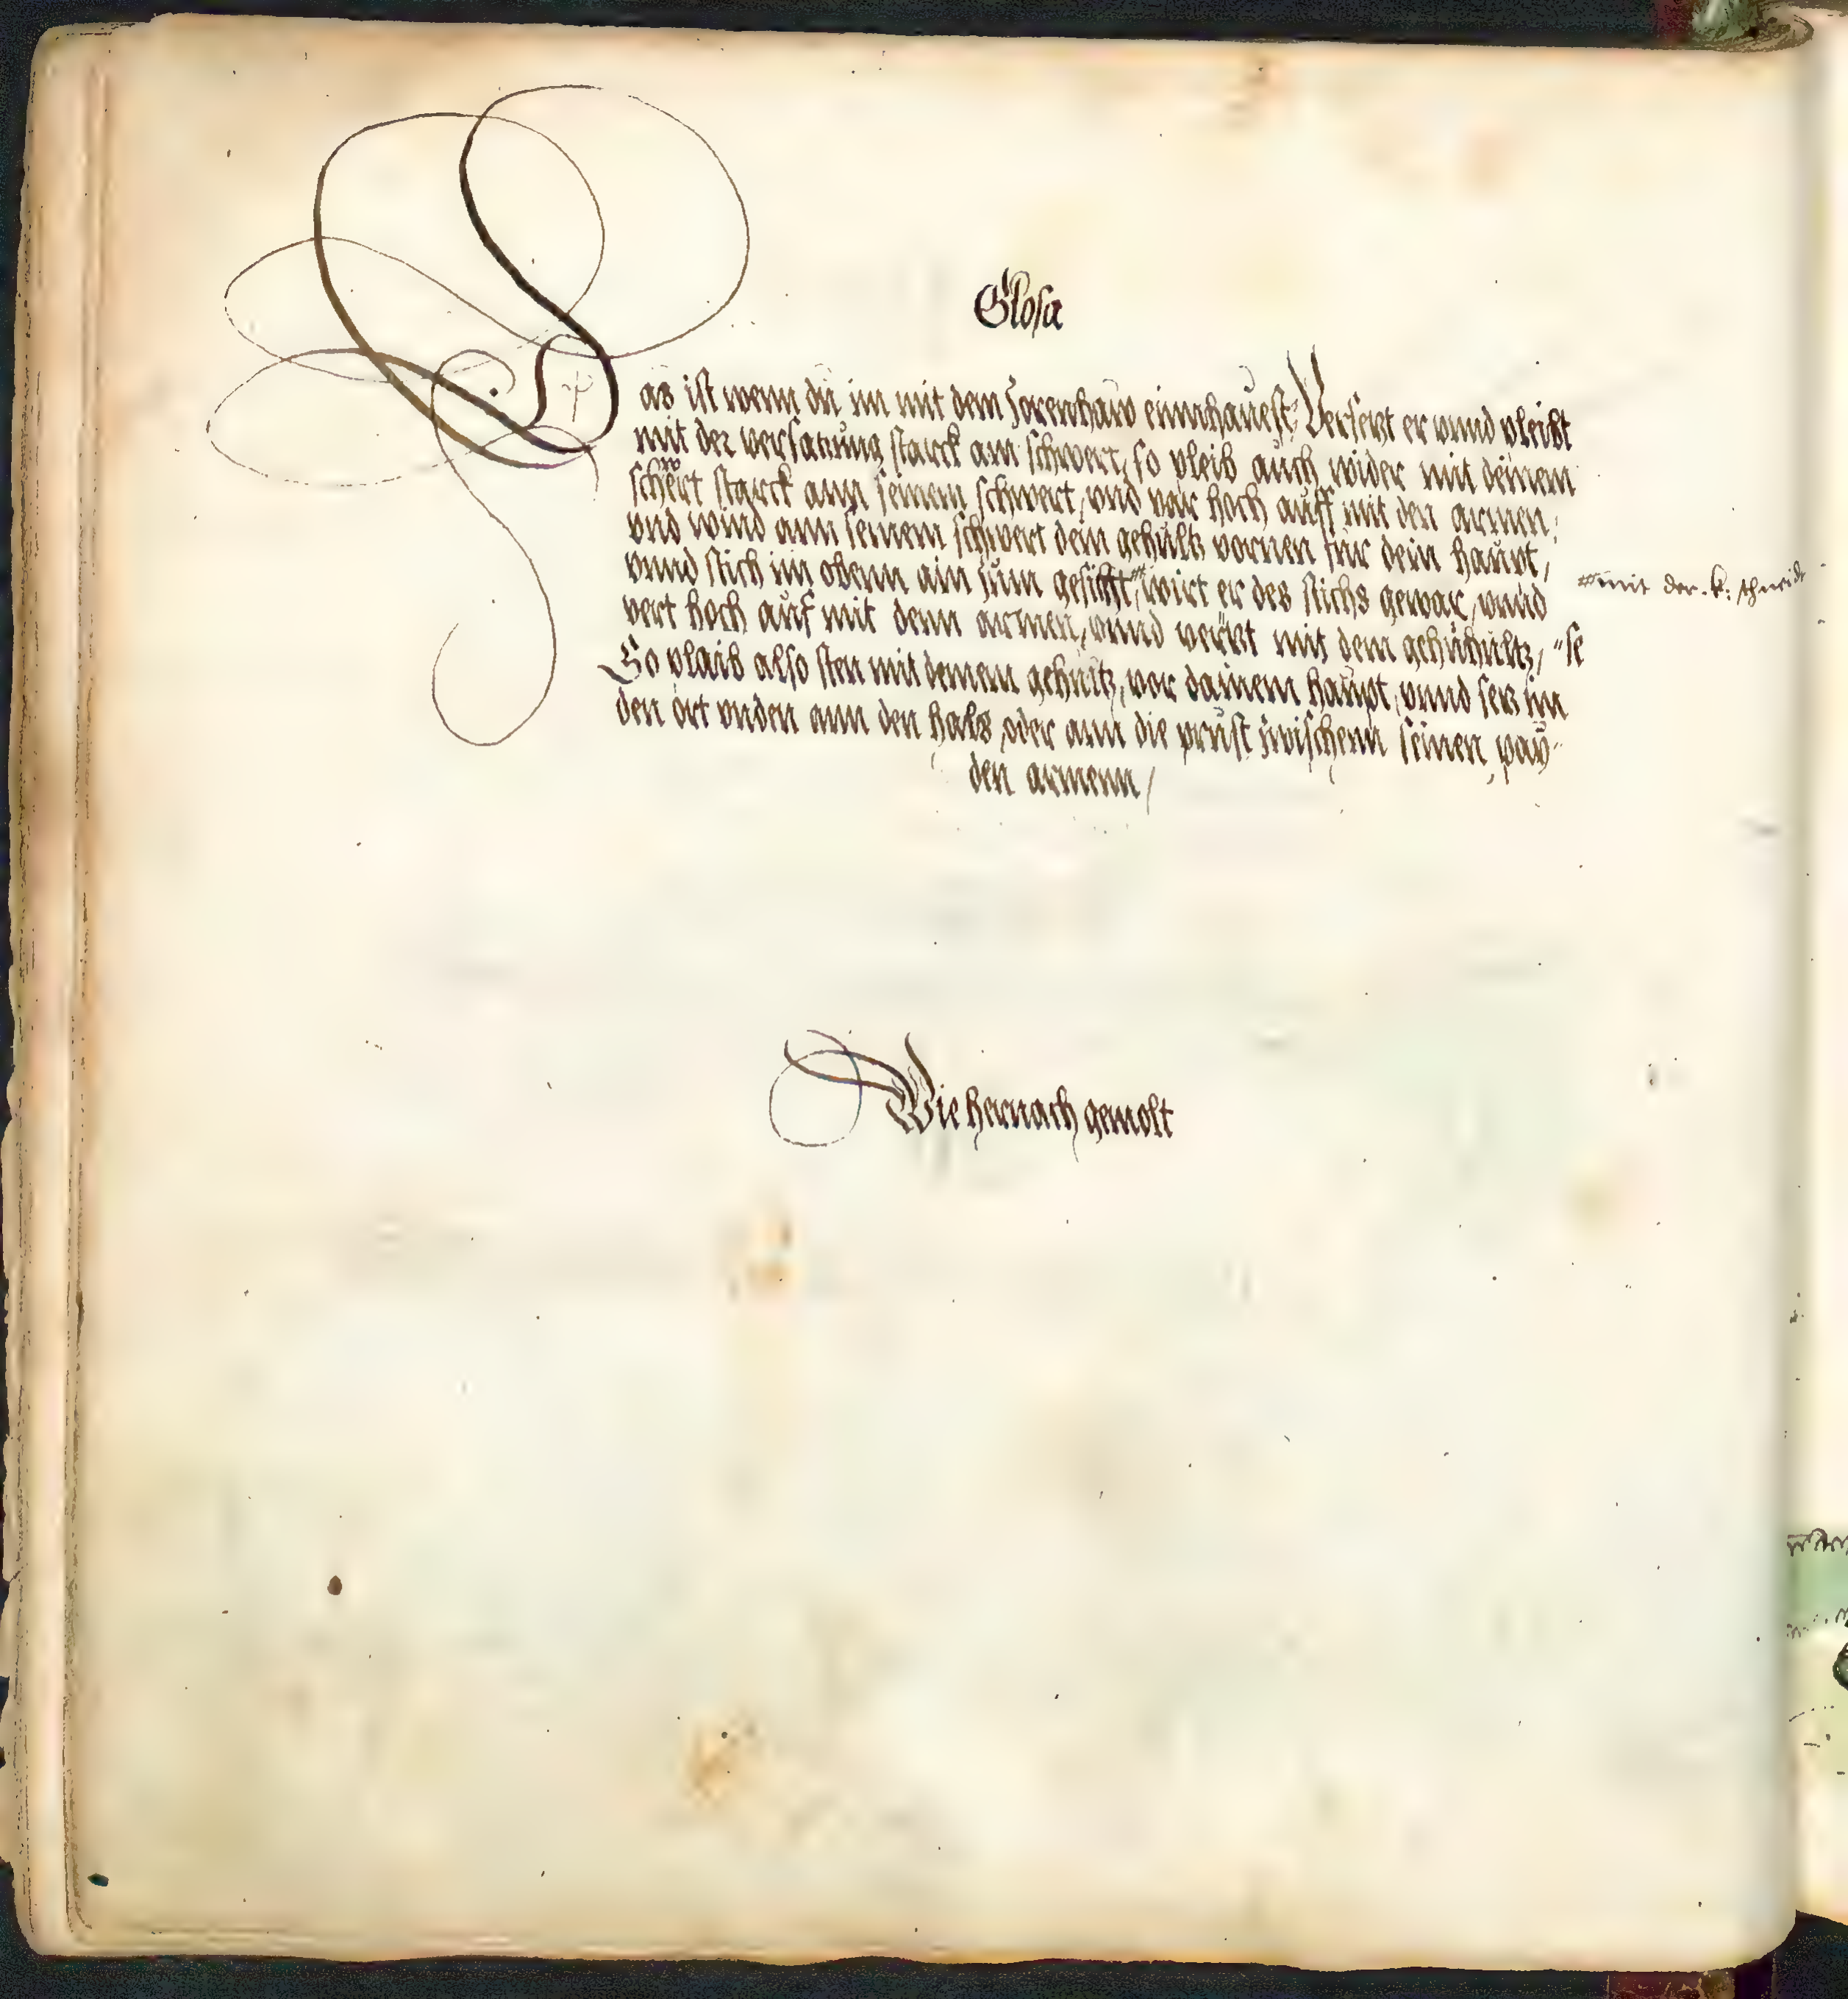 Glosa
Das ist wenn du im mit dem zorenhaw einnhauest, Versetzt er vnnd pleibt
mit der versatzung starck am schwert, so pleib auch wider mit deinem
schwert starck ann seinem schwert, vnd var hoch auff mit den armen,
vnd wind ann seinem schwert dein gehultz vornen für dein haupt,
vnnd stich im obenn ain zum gesicht, wirt er des stichs gewar, vnnd
vert hoch auf mit denn armen, vnnd versetzt mit dem gehultz,
So plaib also sten mit deinem gehultz, vor dainem haupt, vnnd setz im
den ort vnden ann den hals, oder ann die prust zwischenn seinen pay-
den armenn,
mit der k: schneide
Wie hernach gemolt